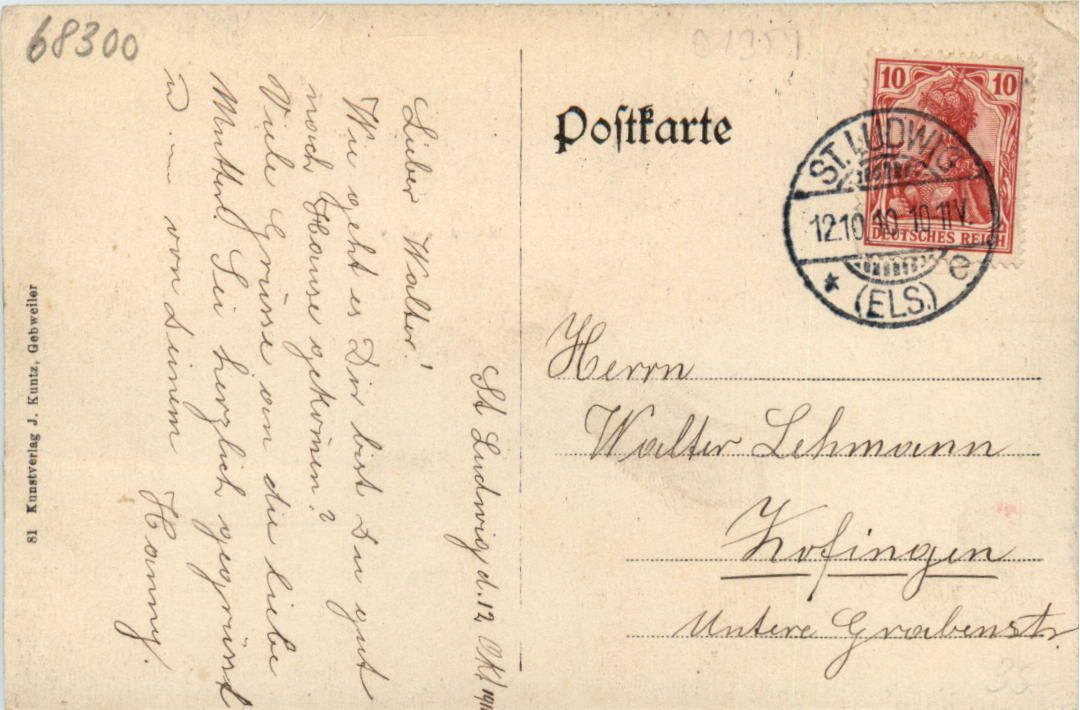 68300
Postkarte
10 10
DEUTSCHES REICH
ST. LUDWIG
12.10.10. 10-11V
* (ELS.) e
Herrn
Walter Lehmann
Zofingen
Untere Grabenstr
St Ludwig, d. 12. Okt 1910
Lieber Walter!
Wie geht es Dir bist Du gut
noch Hause gekomen?
Viele Grüsse an die liebe
Mutterl. Sei herzlich gegrüsst
u. von Deinem
Hanny.
81 Kunstverlag J. Kuntz, Gebweiler
35